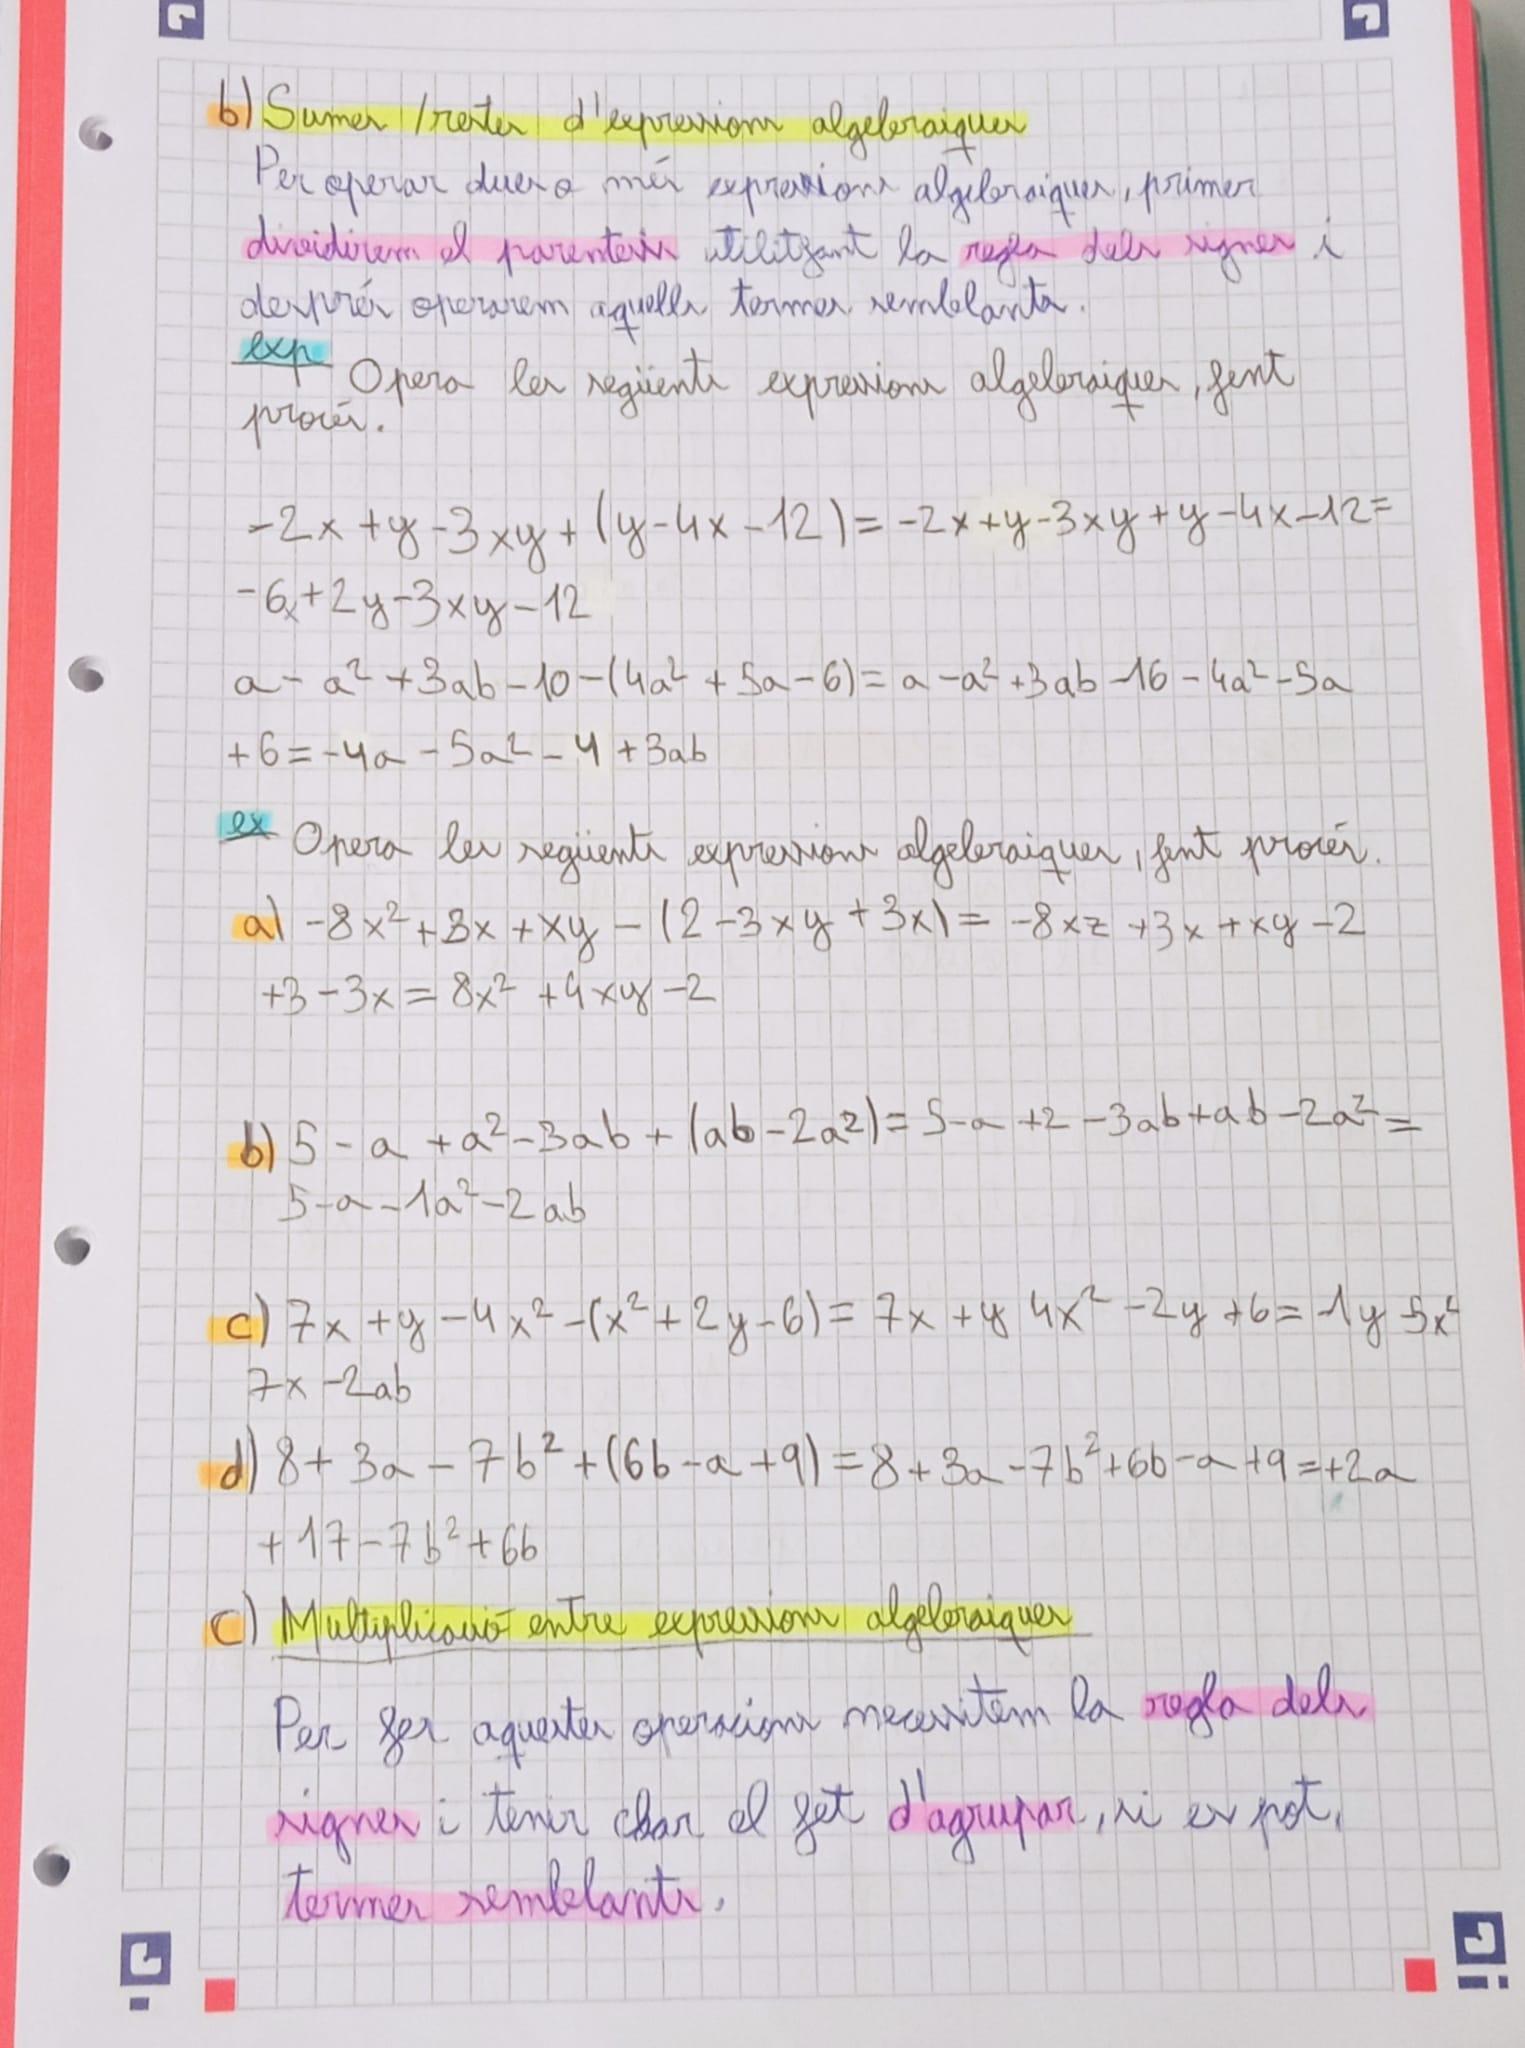 b) Sumes /restes d'expressions algebraiques
Per operar dues o més expressions algebraiques, primer
dividirem el parèntesis utilitzant la regla dels signes i
després operarem aquells termes semblants.
exp Opera les següents expressions algebraiques, fent
procés.
-2x+y-3xy+(y-4x-12)=-2x+y-3xy+y-4x-12=
-6x+2y-3xy-12
a-a²+3ab-10-(4a²+5a-6)=a-a²+3ab-16-4a²-5a
+6=-4a-5a²-4+3ab
ex Opera les següents expressions algebraiques, fent procés.
a) -8x²+3x+xy-(2-3xy+3x)=-8xz+3x+xy-2
+3-3x=8x²+4xy-2
b) 5-a+a²-3ab+(ab-2a²)=5-a+2-3ab+ab-2a²=
5-a-1a²-2ab
c) 7x+y-4x²-(x²+2y-6)=7x+y 4x²-2y+6=-1y 5x²
7x-2ab
d) 8+3a-7b²+(6b-a+9)=8+3a-7b²+6b-a+9=+2a
+17-7b²+6b
c) Multiplicació entre expressions algebraiques
Per fer aquestes operacions necessitem la regla dels
signes i tenir clar el fet d'agrupar, si es pot,
termes semblants.